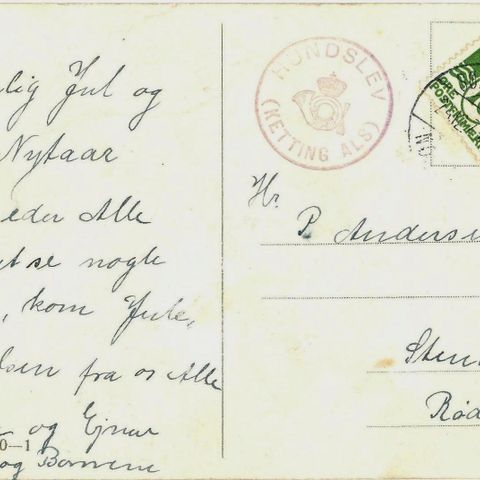 lig Jul og
Nytaar
eder Alle
et se nogle
, kom Jule,
lsen fra os Alle
og Ejner
0—1
og Børnene
HUNDSLEV
(KETTING ALS)
Hr.
P. Anderse
Sten
Rød